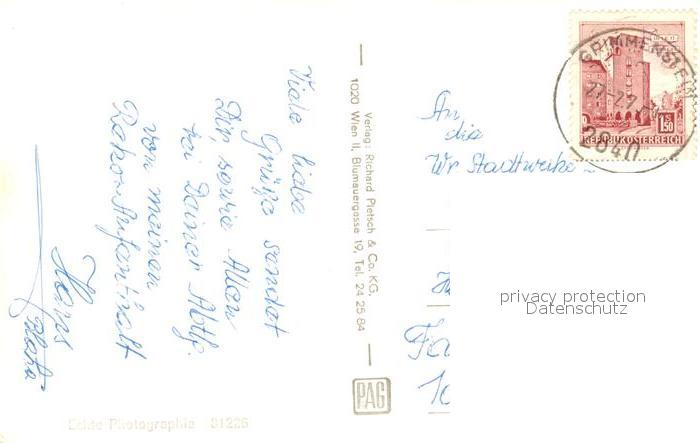 Viele liebe
Grüße sendet
Dir, sowie Allen
bei Deiner Abtlg.
von meinem
Rekon-Aufenthalt
Hans
Verlag: Richard Pietsch & Co. KG,
1020 Wien II, Blumauergasse 19, Tel. 24 25 84
PAG
Echte Photographie 31226
An
die
Wr Stadtwerke
GRIMMENSTEIN
2840
S 1.50
REPUBLIK ÖSTERREICH
privacy protection
Datenschutz